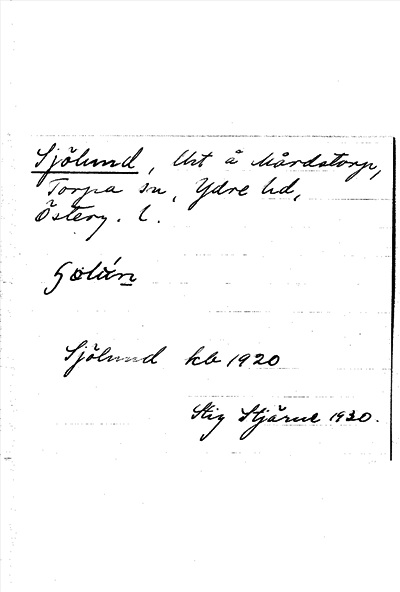 Sjölund, Urt å Mårdstorp,
Torpa sn, Ydre hd,
Österg. l.
Sjölund kb 1920
Stig Stjärne 1930.